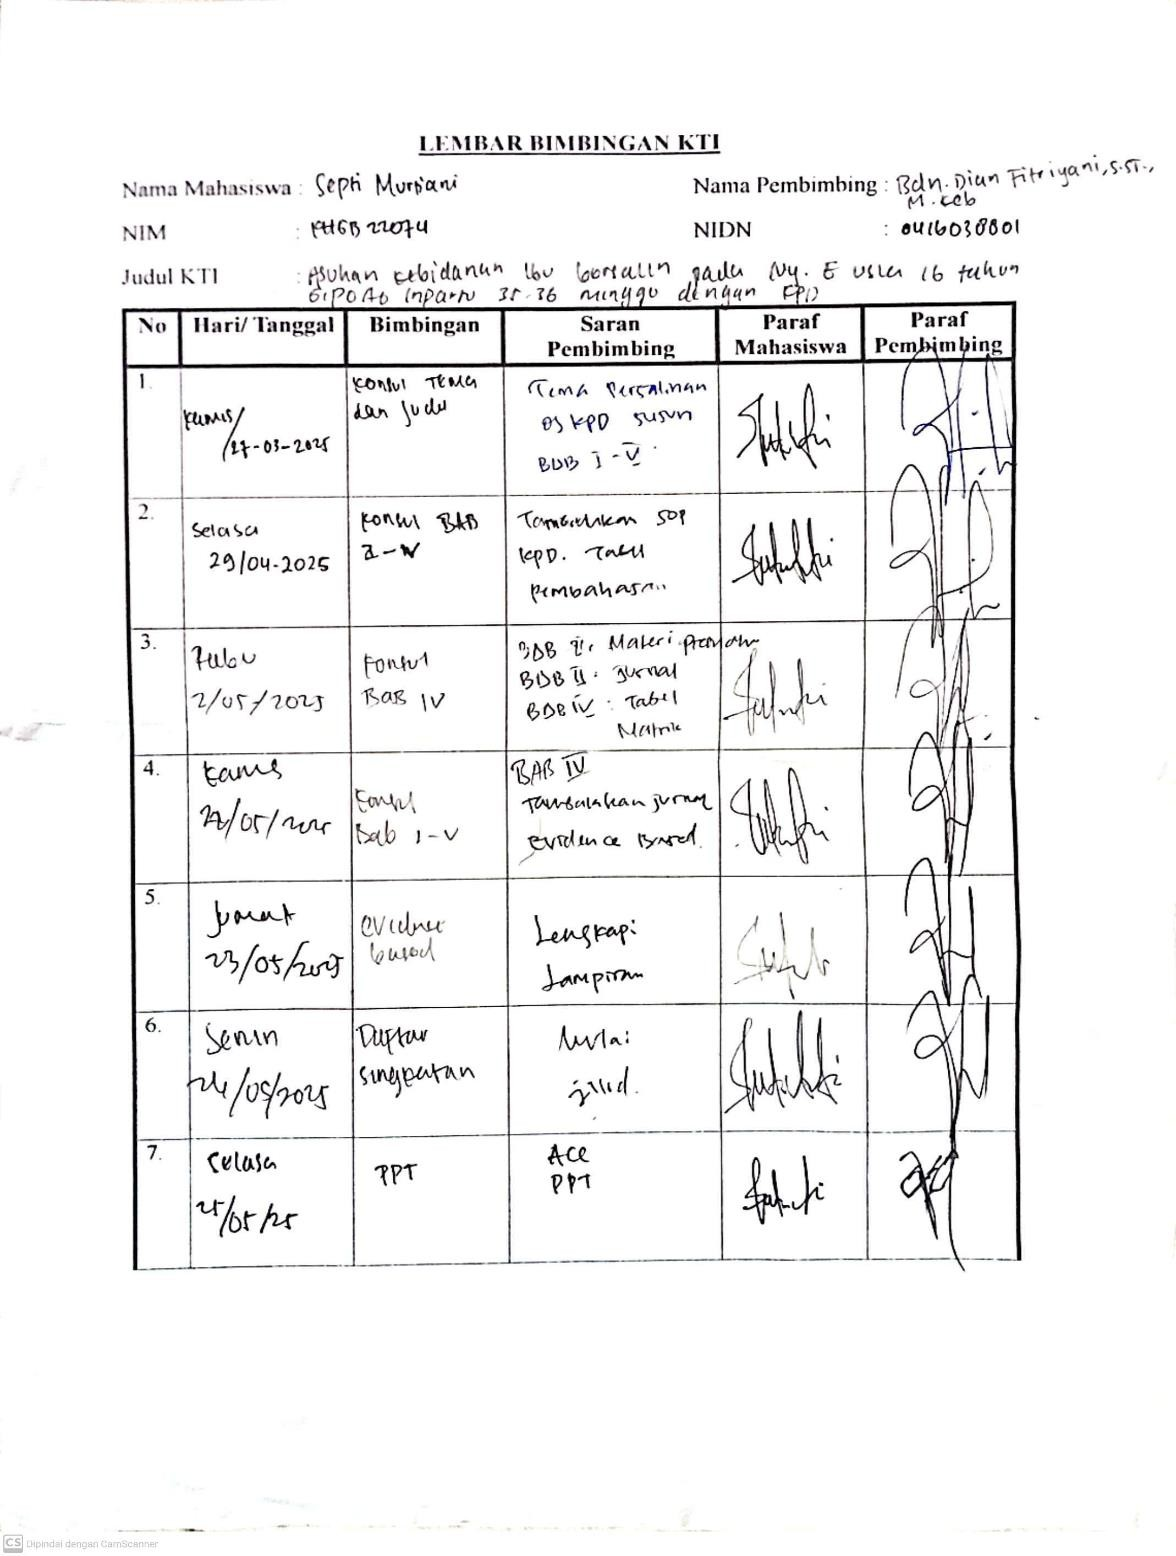 LEMBAR BIMBINGAN KTI
Nama Mahasiswa : Septi Murdiani
Nama Pembimbing : Bdn. Dian Fitriyani, S.ST.,
M.Keb
NIM : KHGB22074
NIDN : 0416038801
Judul KTI : Asuhan kebidanan Ibu bersalin pada Ny. E usia 16 tahun
G1P0A0 Inpartu 35-36 minggu dengan KPD
No Hari/ Tanggal Bimbingan Saran Pembimbing Paraf Mahasiswa Paraf Pembimbing
1. Kamis/ 27-03-2025
Konsul Tema
dan Judul
Tema Persalinan
KPD susun
BAB I - V
2. Selasa
29/04-2025
Konsul BAB
Tambahkan SOP
KPD. Tabel
Pembahasan
3. Rabu
2/05/2025
Konsul
BAB IV
BAB II: Materi
BAB II: Jurnal
BAB IV: Tabel
Matrik
4. Kamis
22/05/2025
Konsul
Bab I-V
BAB IV
Tambahkan jurnal
evidence Based.
5. Jumat
23/05/2025
evidence
based
Lengkapi
Lampiran
6. Senin
24/05/2025
Daftar
singkatan
Mulai
jilid.
7. Selasa
25/05/25
PPT
ACC
PPT
CS Dipindai dengan CamScanner